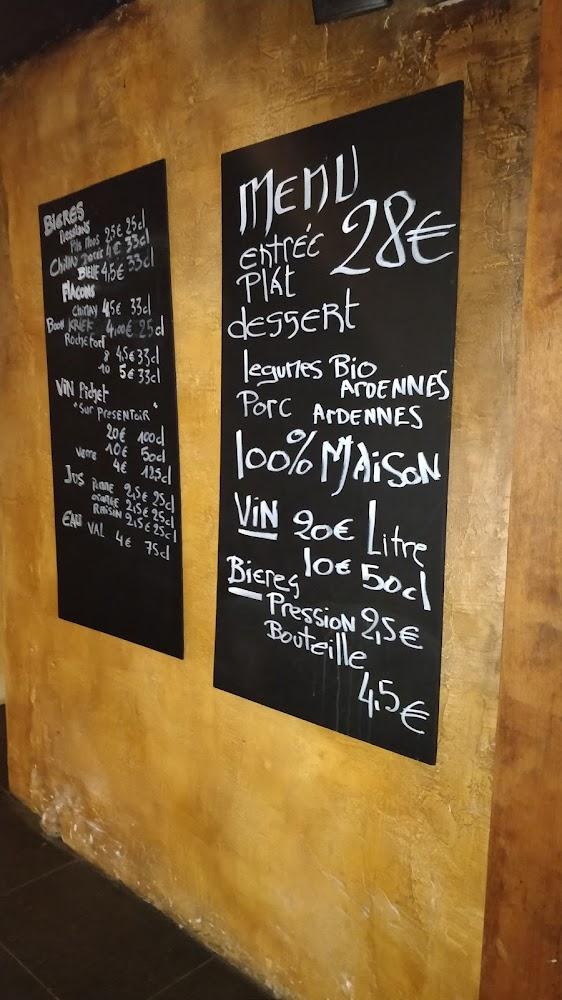 BIERES
Pressions
Pils Mous 2,5€ 25cl
Chimay Dorée 4€ 33cl
BLEUE 4,5€ 33cl
FLACONS
CHIMAY 4,5€ 33cl
BOON KRIEK 4,00€ 25cl
ROCHEFORT
8 4,5€ 33cl
10 5€ 33cl
VIN Pichet
"SUR PRESENTOIR"
20€ 100cl
10€ 50cl
Verre 4€ 12,5cl
JUS POMME 2,5€ 25cl
ORANGE 2,5€ 25cl
RAISIN 2,5€ 25cl
EAU VAL 4€ 75cl
MENU
28€
entrée
PLAt
dessert
legumes Bio
ArDENNES
Porc ArDENNES
100% MAiSON
ViN 20€ Litre
10€ 50cl
Bieres
Pression 2,5€
Bouteille
4,5€